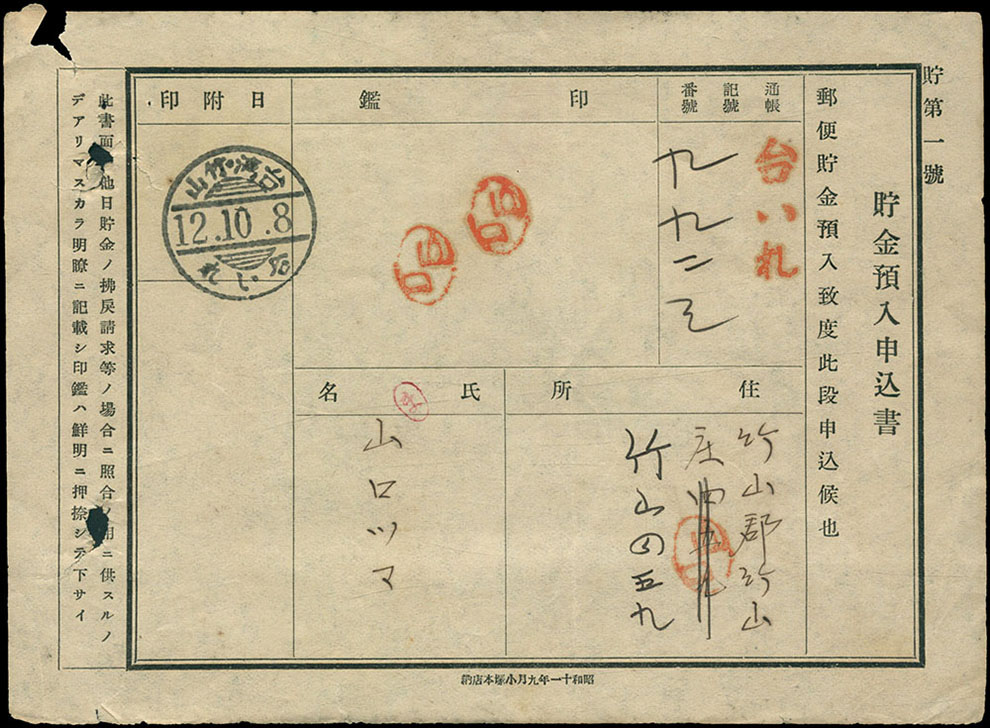 貯第一號
貯金預入申込書
郵便貯金預入致度此段申込候也
通帳
記號
番號
台いれ
九九二三
印鑑
山口
山口
日附印
台灣・竹山
12.10.8
れい
住所
竹山郡竹山
庄
竹山四五九
氏名
山口ツマ
此書面 他日貯金ノ拂戻請求等ノ場合ニ照合ノ用ニ供スルノ
デアリマスカラ明瞭ニ記載シ印鑑ハ鮮明ニ押捺シテ下サイ
昭和十一年九月小塚本店納